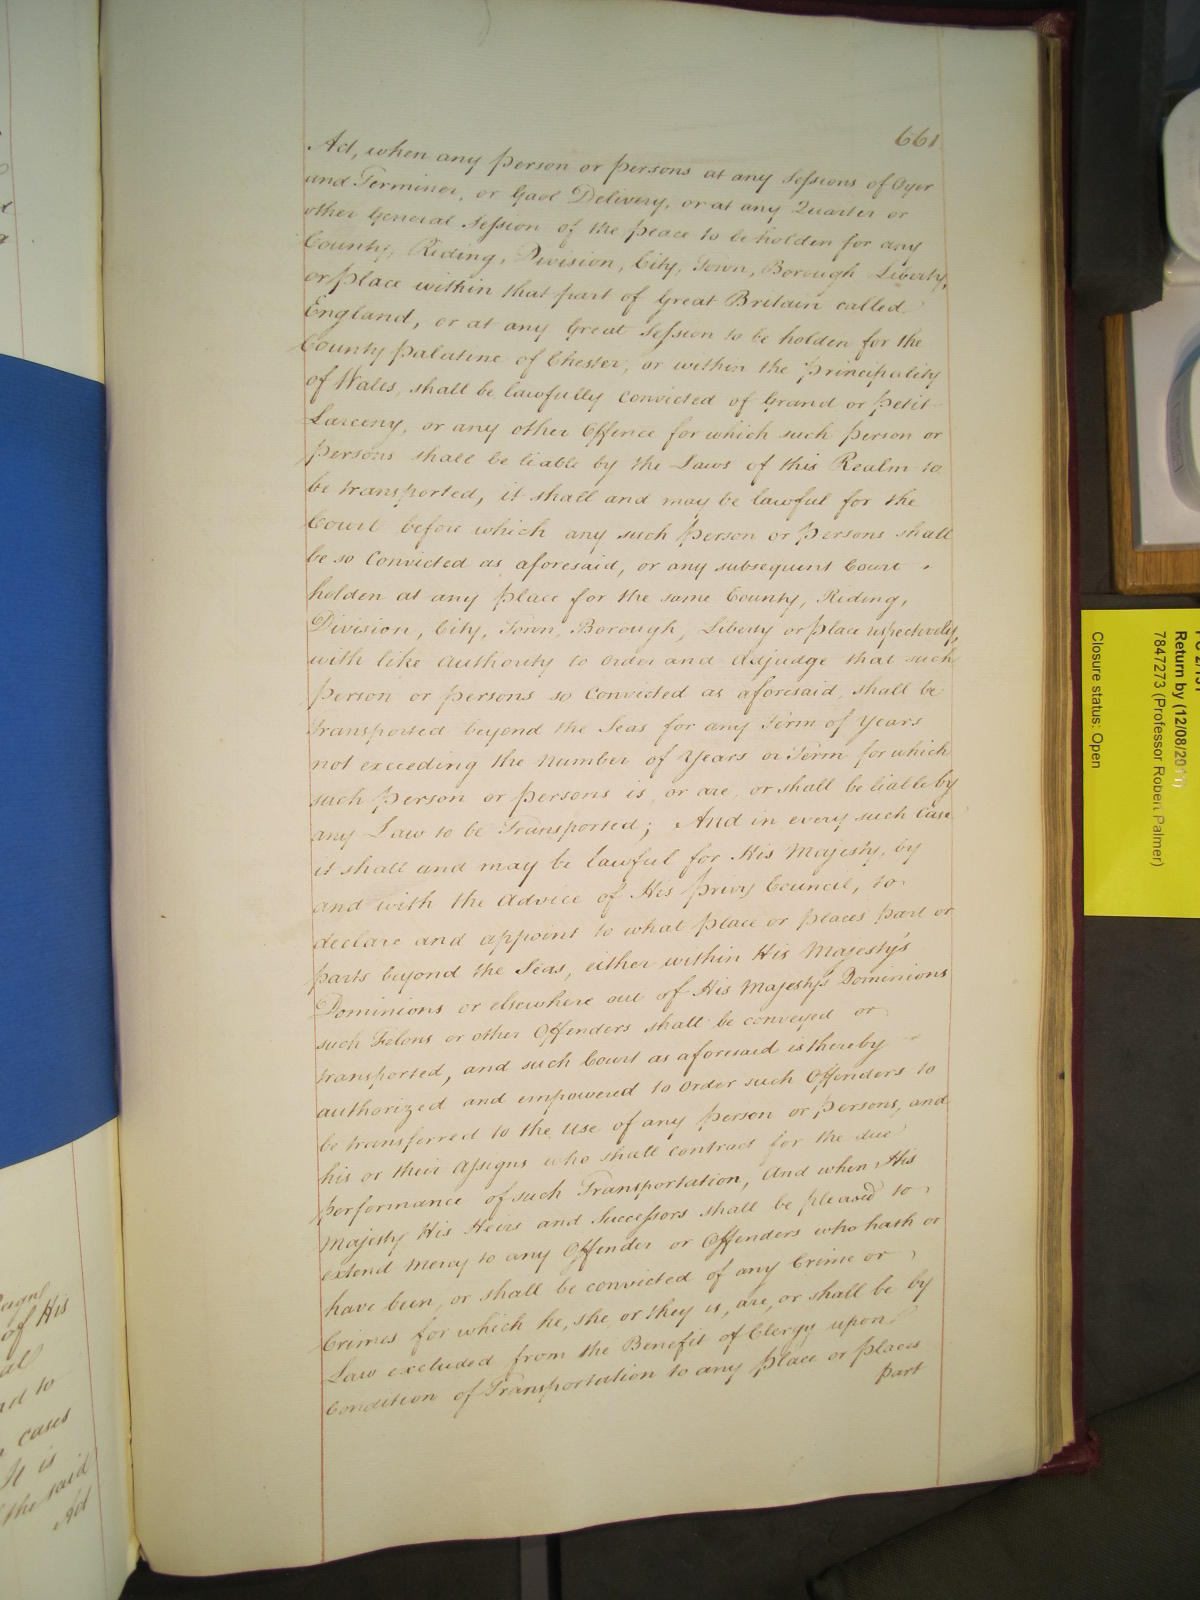 661
Act, when any person or persons at any Sessions of Oyer
and Terminer, or Gaol Delivery, or at any Quarter or
other General Session of the peace to be holden for any
County, Riding, Division, City, Town, Borough Liberty,
or place within that part of Great Britain called
England, or at any Great Session to be holden for the
County palatine of Chester, or within the principality
of Wales, shall be lawfully convicted of Grand or petit
Larceny, or any other Offence for which such person or
persons shall be liable by the Laws of this Realm to
be transported, it shall and may be lawful for the
Court before which any such person or persons shall
be so Convicted as aforesaid, or any subsequent Court
holden at any place for the same County, Riding,
Division, City, Town, Borough, Liberty or place respectively,
with like authority to order and adjudge that such
person or persons so Convicted as aforesaid, shall be
transported beyond the Seas for any Term of Years
not exceeding the number of Years or Term for which
such person or persons is, or are, or shall be liable by
any Law to be Transported; And in every such Case
it shall and may be lawful for His Majesty, by
and with the Advice of His privy Council, to
declare and appoint to what place or places part or
parts beyond the Seas, either within His Majesty's
Dominions or elsewhere out of His Majesty's Dominions
such Felons or other Offenders shall be conveyed or
transported, and such Court as aforesaid is thereby
authorized and empowered to order such Offenders to
be transferred to the use of any person or persons, and
his or their Assigns who shall contract for the due
performance of such Transportation, And when His
Majesty His Heirs and Successors shall be pleased to
extend mercy to any Offender or Offenders who hath or
have been, or shall be convicted of any Crime or
Crimes for which he, she, or they is, are, or shall be by
Law excluded from the Benefit of Clergy upon
Condition of Transportation to any place or places
part
of His
nd to
cases
It is
the said
Act
Return by (12/08/20
7847273 (Professor Robert Palmer)
Closure status: Open